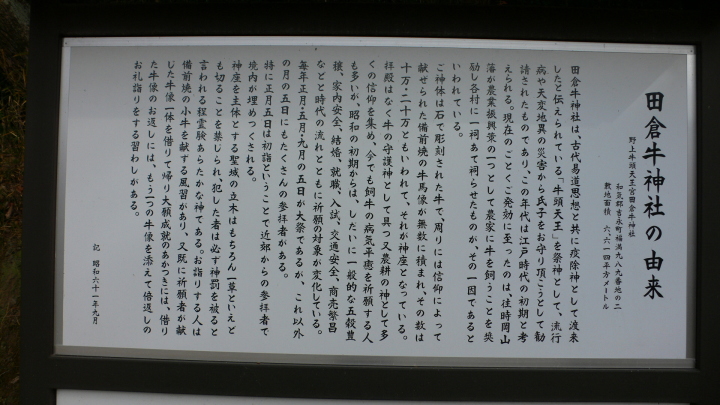 田倉牛神社の由来
野上牛頭天王宮田倉牛神社
和気郡吉永町福満九八九番地の二
敷地面積 六、六一四平方メートル
田倉牛神社は、古代易道思想と共に疫除神として渡来
したと伝えられている「牛頭天王」を祭神として、流行
病や天変地異の災害から氏子をお守り頂こうとして勧
請されたものであり、この年代は江戸時代の初期と考
えられる。現在のごとくご発効に至ったのは、往時岡山
藩が農業振興策の一つとして農家に牛を飼うことを奨
励し各村に一祠あて祠らせたものが、その一因であると
いわれている。
ご神体は石で彫刻された牛で、周りには信仰によって
献せられた備前焼の牛馬像が無数に積まれ、その数は
十万・二十万ともいわれて、それが神座となっている。
拝殿はなく牛の守護神として具つ又農耕の神として多
くの信仰を集め、今でも飼牛の病気平癒を祈願する人
も多いが、昭和の初期からは、しだいに一般的な五穀豊
穣、家内安全、結婚、就職、入試、交通安全、商売繁昌
などと時代の流れとともに祈願の対象が変化している。
毎年正月・五月・九月の五日が大祭であるが、これ以外
の月の五日にもたくさんの参拝者がある。
特に正月五日は初詣ということで近郊からの参拝者で
境内が埋めつくされる。
神座を主体とする聖域の立木はもちろん一草といえど
も切ることを禁じられ、犯した者は必ず神罰を被ると
言われる程霊験あらたかな神である。お詣りする人は
備前焼の小牛を献する風習があり、又既に祈願者が献
じた牛像一体を借りて帰り大願成就のあかつきには、借り
た牛像のお返しには、もう一つの牛像を添えて倍返しの
お礼詣りをする習わしがある。
記 昭和六十一年九月